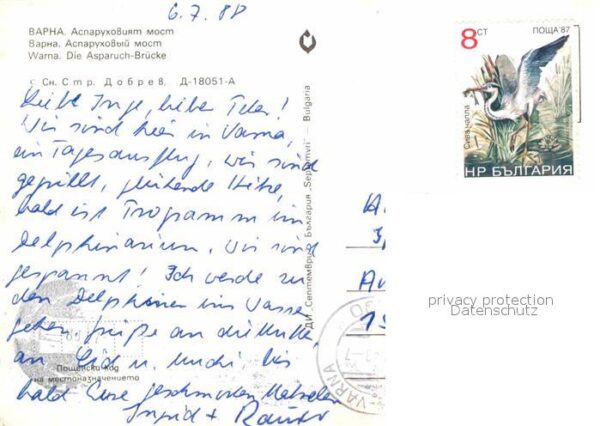 6.7.88
ВАРНА. Аспаруховият мост
Варна. Аспаруховый мост
Warna. Die Asparuch-Brücke
с Сн. Стр. Добрев, Д-18051-А
Liebe Inge, lieber Peter!
Wir sind hier in Varna,
ein Tagesausflug, wir sind
gegrillt, glühende Hitze,
bald ist Programm im
Delphinarium. Wir sind
gespannt! Ich werde zu
den Delphinen ins Wasser
gehen, Grüße an die Mutti,
an u. Muchi, bis
bald Eure geschmorten
Ingrid +
Пощенски код
на местоназначението
ДИ „Септември" България „Septemvri" — Bulgaria
8 СТ
ПОЩА'87
Сива чапла
НР БЪЛГАРИЯ
VARNA
privacy protection
Datenschutz